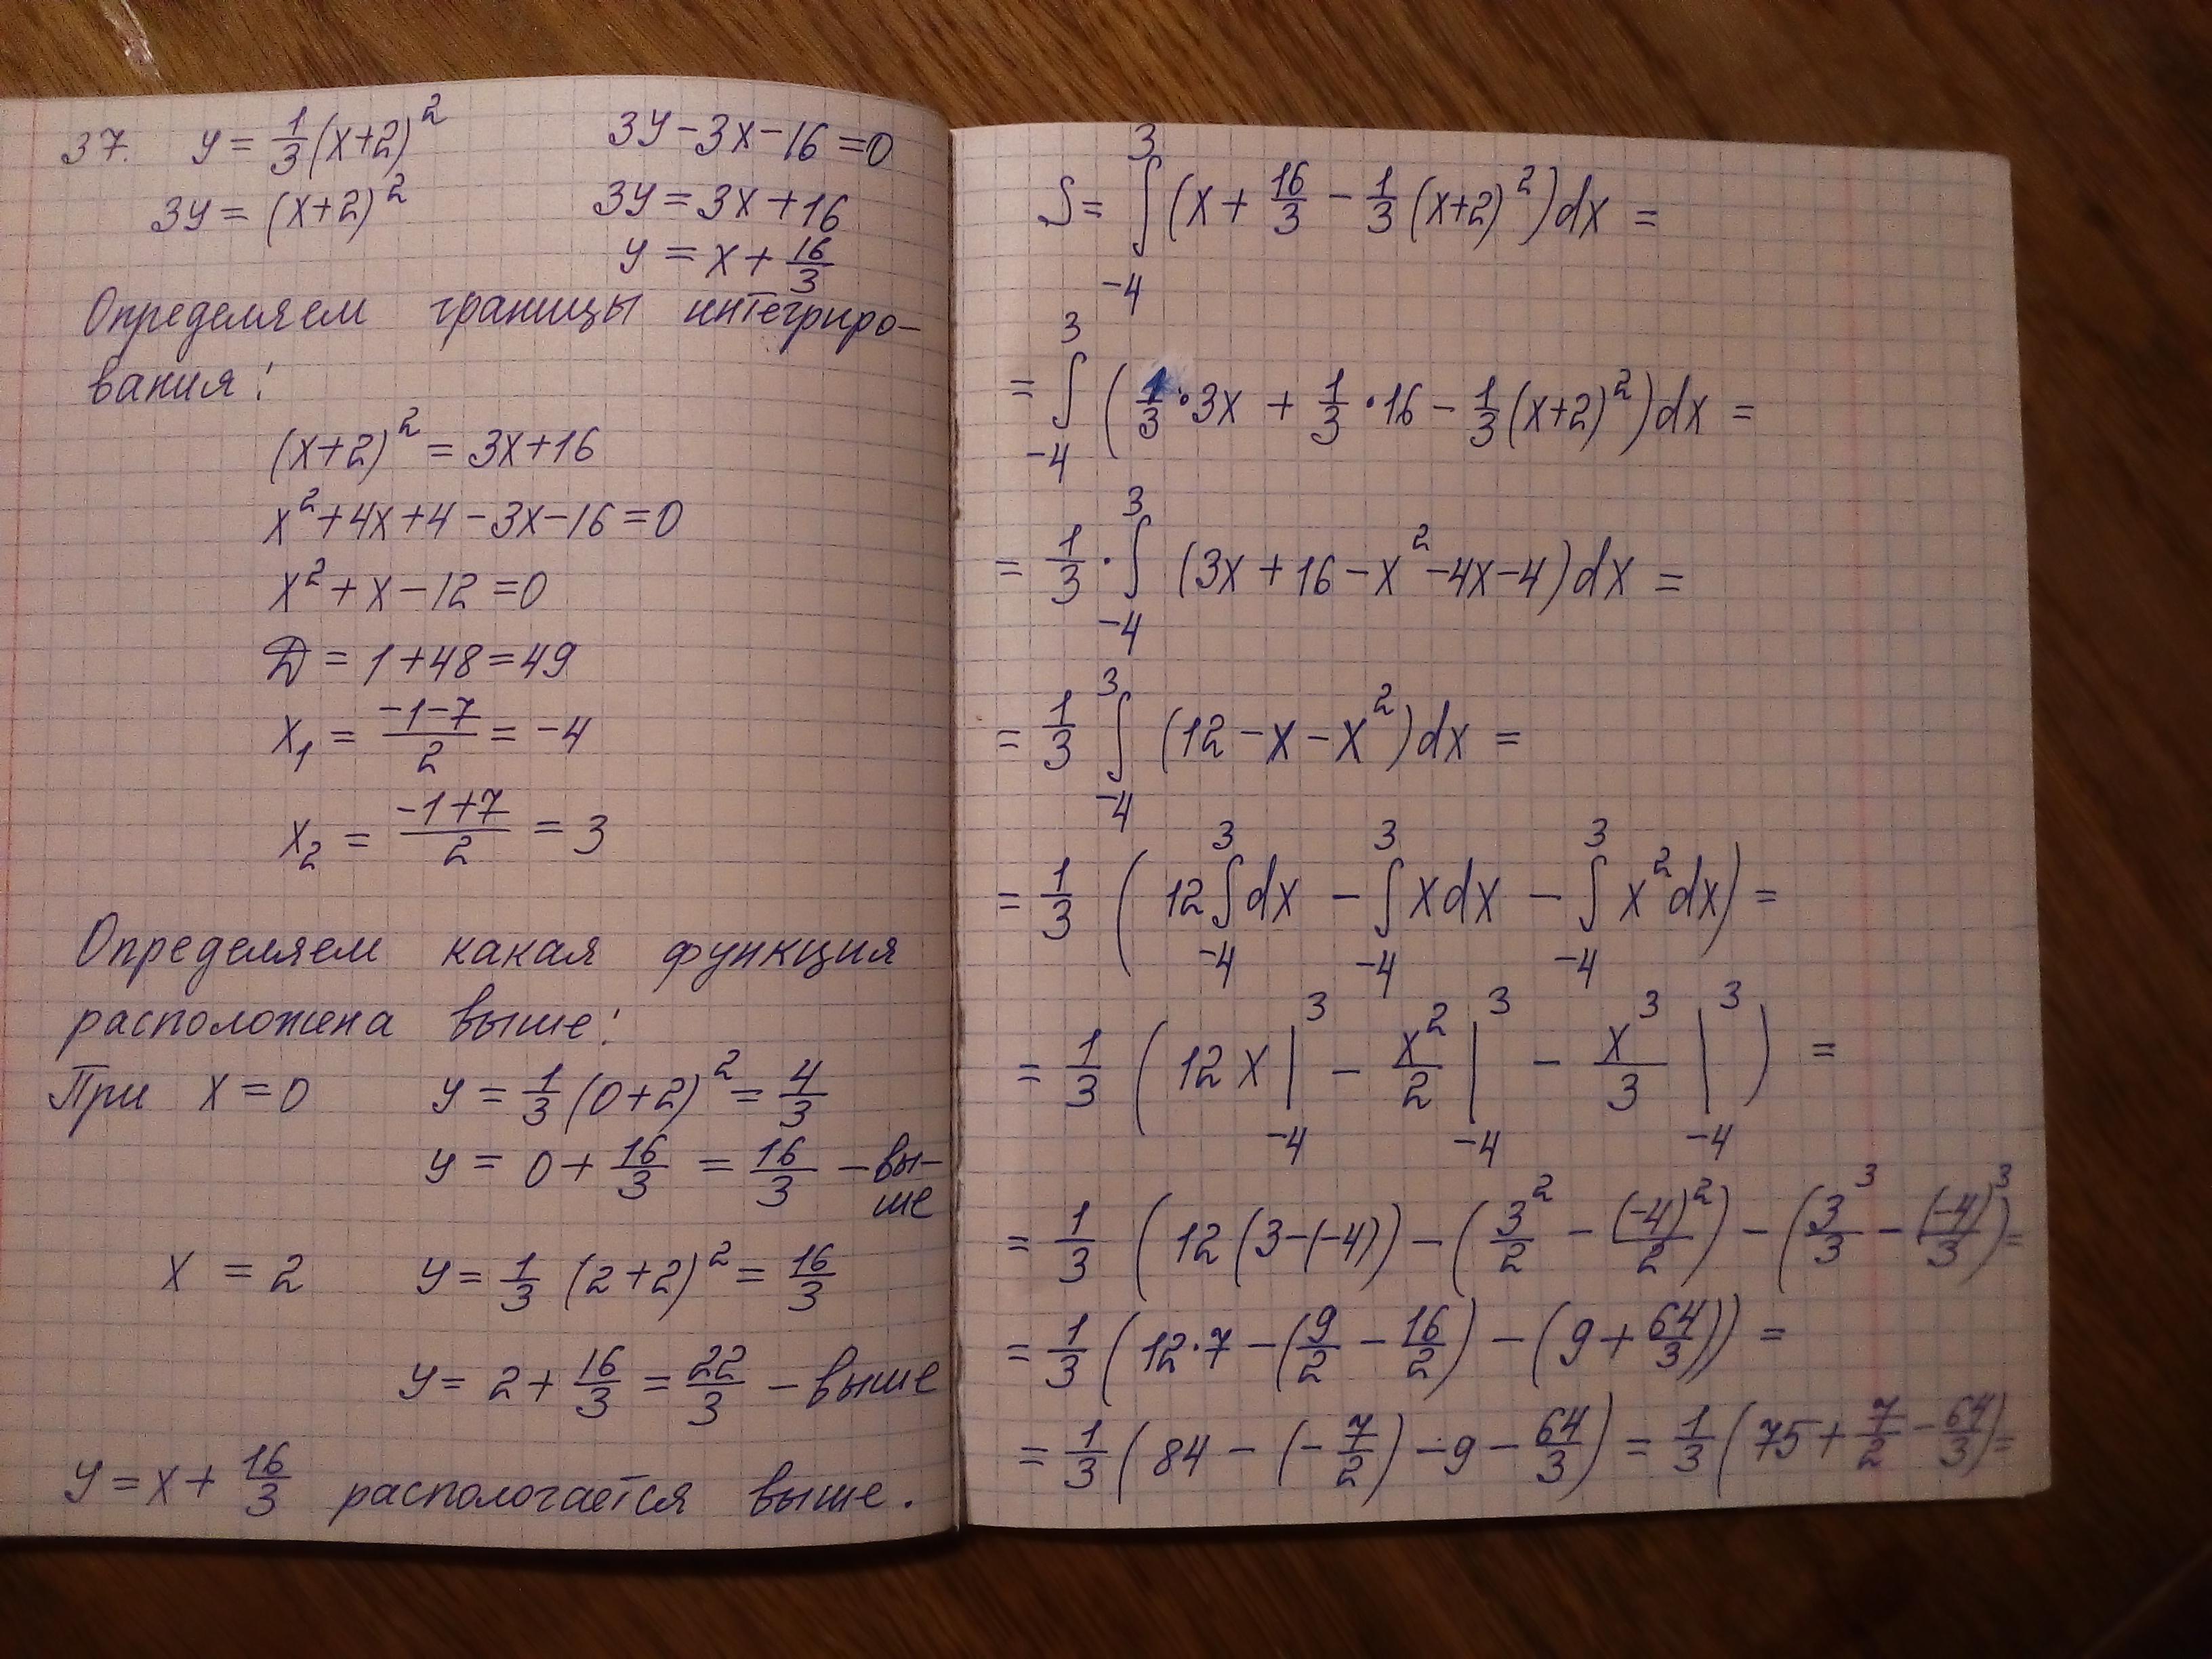 37. y = 1/3 (x+2)²
3y = (x+2)²
3y - 3x - 16 = 0
3y = 3x + 16
y = x + 16/3
Определяем границы интегриро-
вания:
(x+2)² = 3x+16
x² + 4x + 4 - 3x - 16 = 0
x² + x - 12 = 0
D = 1 + 48 = 49
x₁ = (-1-7)/2 = -4
x₂ = (-1+7)/2 = 3
Определяем какая функция
расположена выше:
При x = 0 y = 1/3 (0+2)² = 4/3
y = 0 + 16/3 = 16/3 - вы-
ше
x = 2 y = 1/3 (2+2)² = 16/3
y = 2 + 16/3 = 22/3 - выше
y = x + 16/3 распологается выше.
S = ∫₋₄³ (x + 16/3 - 1/3 (x+2)²) dx =
= ∫₋₄³ (1/3 · 3x + 1/3 · 16 - 1/3 (x+2)²) dx =
= 1/3 · ∫₋₄³ (3x + 16 - x² - 4x - 4) dx =
= 1/3 ∫₋₄³ (12 - x - x²) dx =
= 1/3 (12 ∫₋₄³ dx - ∫₋₄³ x dx - ∫₋₄³ x² dx) =
= 1/3 (12x |₋₄³ - x²/2 |₋₄³ - x³/3 |₋₄³) =
= 1/3 (12(3-(-4)) - (3²/2 - (-4)²/2) - (3³/3 - (-4)³/3) =
= 1/3 (12·7 - (9/2 - 16/2) - (9 + 64/3)) =
= 1/3 (84 - (-7/2) - 9 - 64/3) = 1/3 (75 + 7/2 - 64/3) =